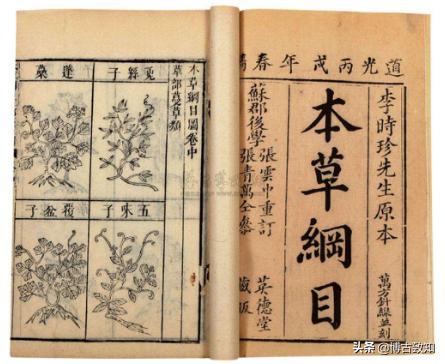 道光丙戌年春
李時珍先生原本
萬方針線並刻
本草綱目
蘇郡後學
張雲中重訂
張青萬仝參
英德堂
藏版
本草綱目圖卷中
草部蔓草類
兔絲子
蓬蘽
五味子
覆盆子
头条 @博古致知